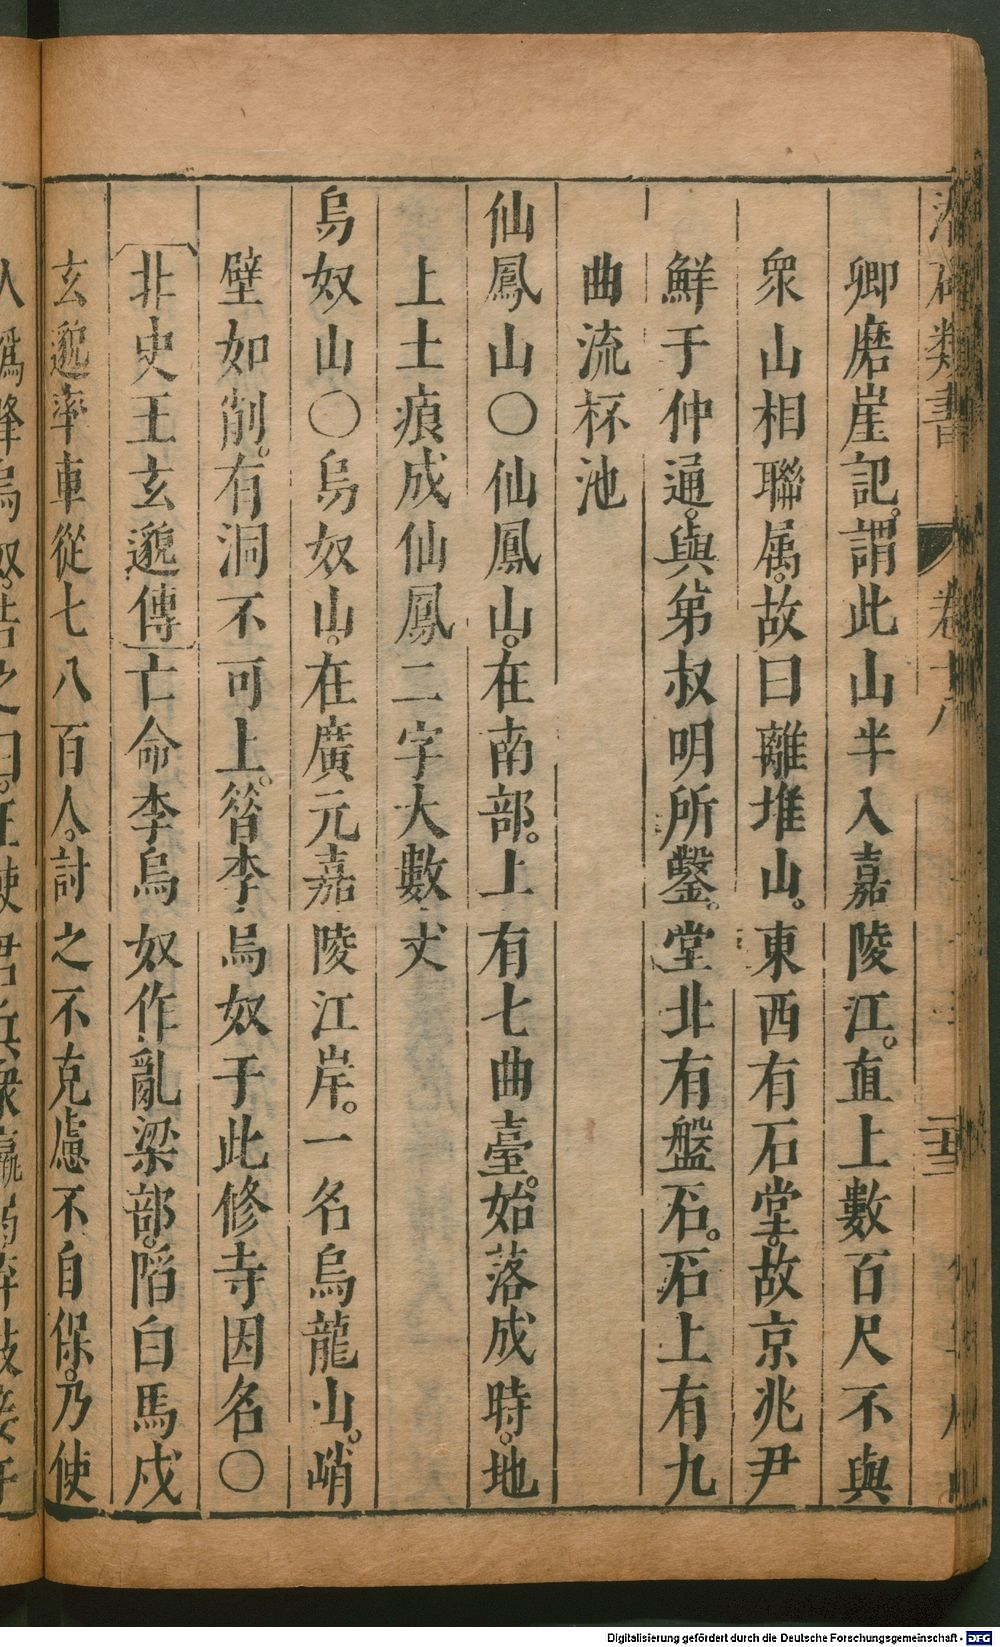 潛確類書 卷十八
卿磨崖記。謂此山半入嘉陵江。直上數百尺不與
衆山相聯属。故曰離堆山。東西有石堂。故京兆尹
鮮于仲通。與弟叔明所鑿。堂北有盤石。石上有九
曲流杯池
仙鳳山〇仙鳳山。在南部。上有七曲臺。始落成時。地
上土痕成仙鳳二字大數丈
烏奴山〇烏奴山。在廣元嘉陵江岸。一名烏龍山。峭
壁如削。有洞不可上。昝李烏奴于此修寺因名〇
北史王玄邈傳亡命李烏奴作亂梁部。陷白馬戍
玄邈率車從七八百人。討之不克慮不自保。乃使
人僞降烏奴。告之曰。王使君兵衆羸弱弃妓妾于
Digitalisierung gefördert durch die Deutsche Forschungsgemeinschaft - DFG